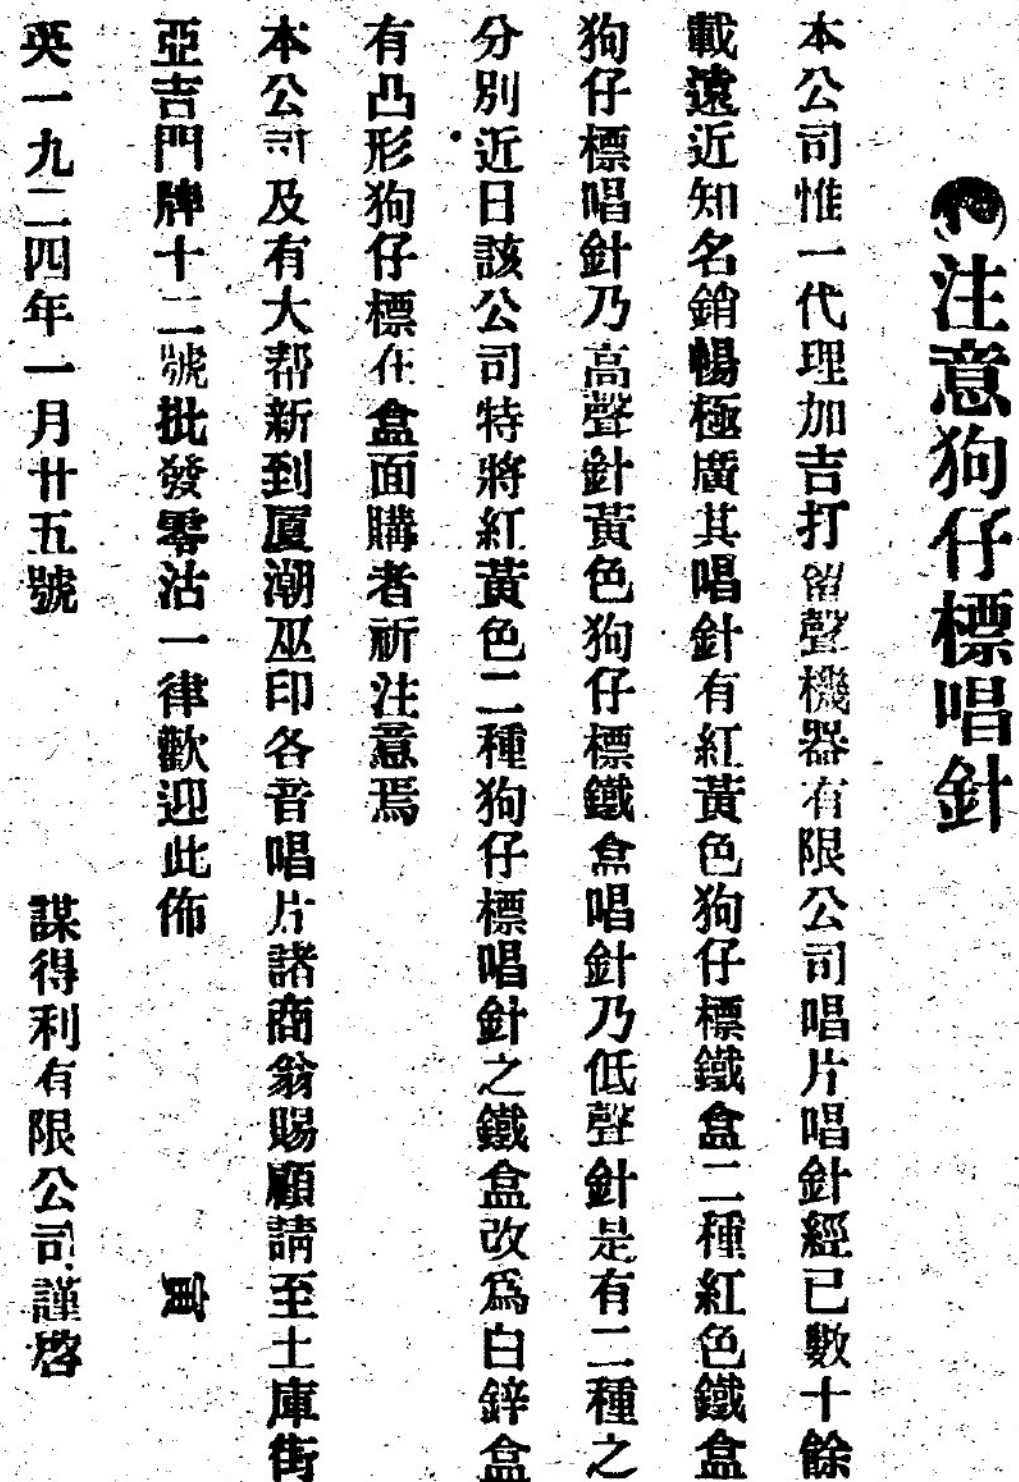 注意狗仔標唱針
本公司惟一代理加吉打留聲機器有限公司唱片唱針經已數十餘
載遠近知名銷暢極廣其唱針有紅黃色狗仔標鐵盒二種紅色鐵盒
狗仔標唱針乃高聲針黃色狗仔標鐵盒唱針乃低聲針是有二種之
分別近日該公司特將紅黃色二種狗仔標唱針之鐵盒改爲白鋅盒
有凸形狗仔標在盒面購者祈注意焉
本公司及有大帮新到厦潮巫印各音唱片諸商翁賜顧請至土庫街
亞吉門牌十二號批發零沽一律歡迎此佈
寅
英一九二四年一月廿五號
謀得利有限公司謹啓